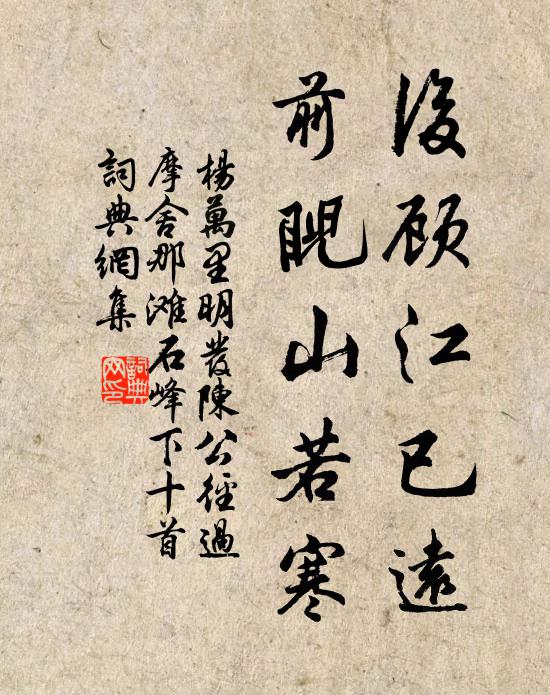 後顾江已遠
前睨山若寒
楊萬里明發陳公徑過
摩舍那滩石峰下十首
詞典網集
詞典
网印